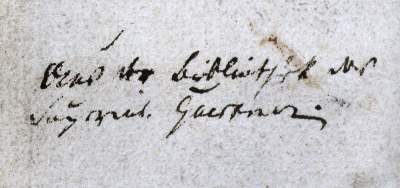 Aus der Bibliothek des
Gaertner.